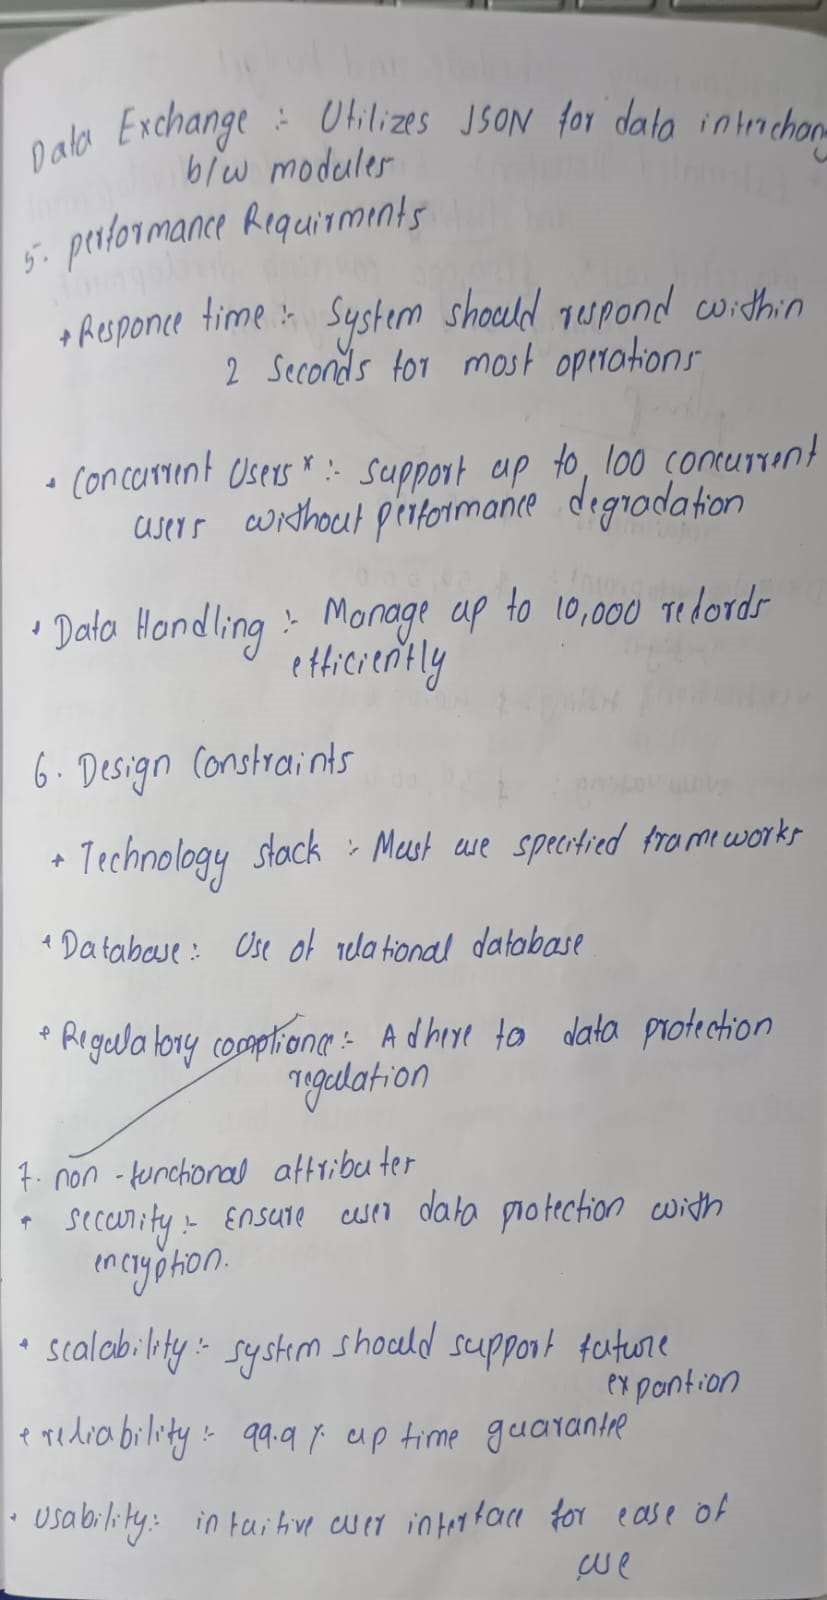 Data Exchange :- Utilizes JSON for data interchang
b/w modules
5. performance Requirments
• Responce time :- System should respond within
2 Seconds for most operations
• Concurrent Users * :- Support up to 100 concurrent
users without performance degradation
• Data Handling :- Manage up to 10,000 redords
efficiently
6. Design Constraints
• Technology stack :- Must use specified frameworks
• Database :- Use of relational database
• Regulatory compliance :- Adhere to data protection
regulation
7. non-functional attributes
• security :- Ensure user data protection with
encryption.
• scalability :- system should support future
expantion
• reliability :- 99.9 % up time guarantee
• Usability :- intuitive user interface for ease of
use